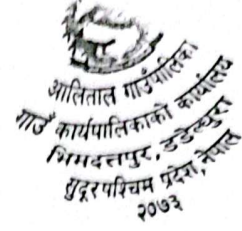 आलिताल गाउँपालिका
गाउँ कार्यपालिकाको कार्यालय
भिमदत्तपुर, डडेल्धुरा
सुदूरपश्चिम प्रदेश, नेपाल
२०७३